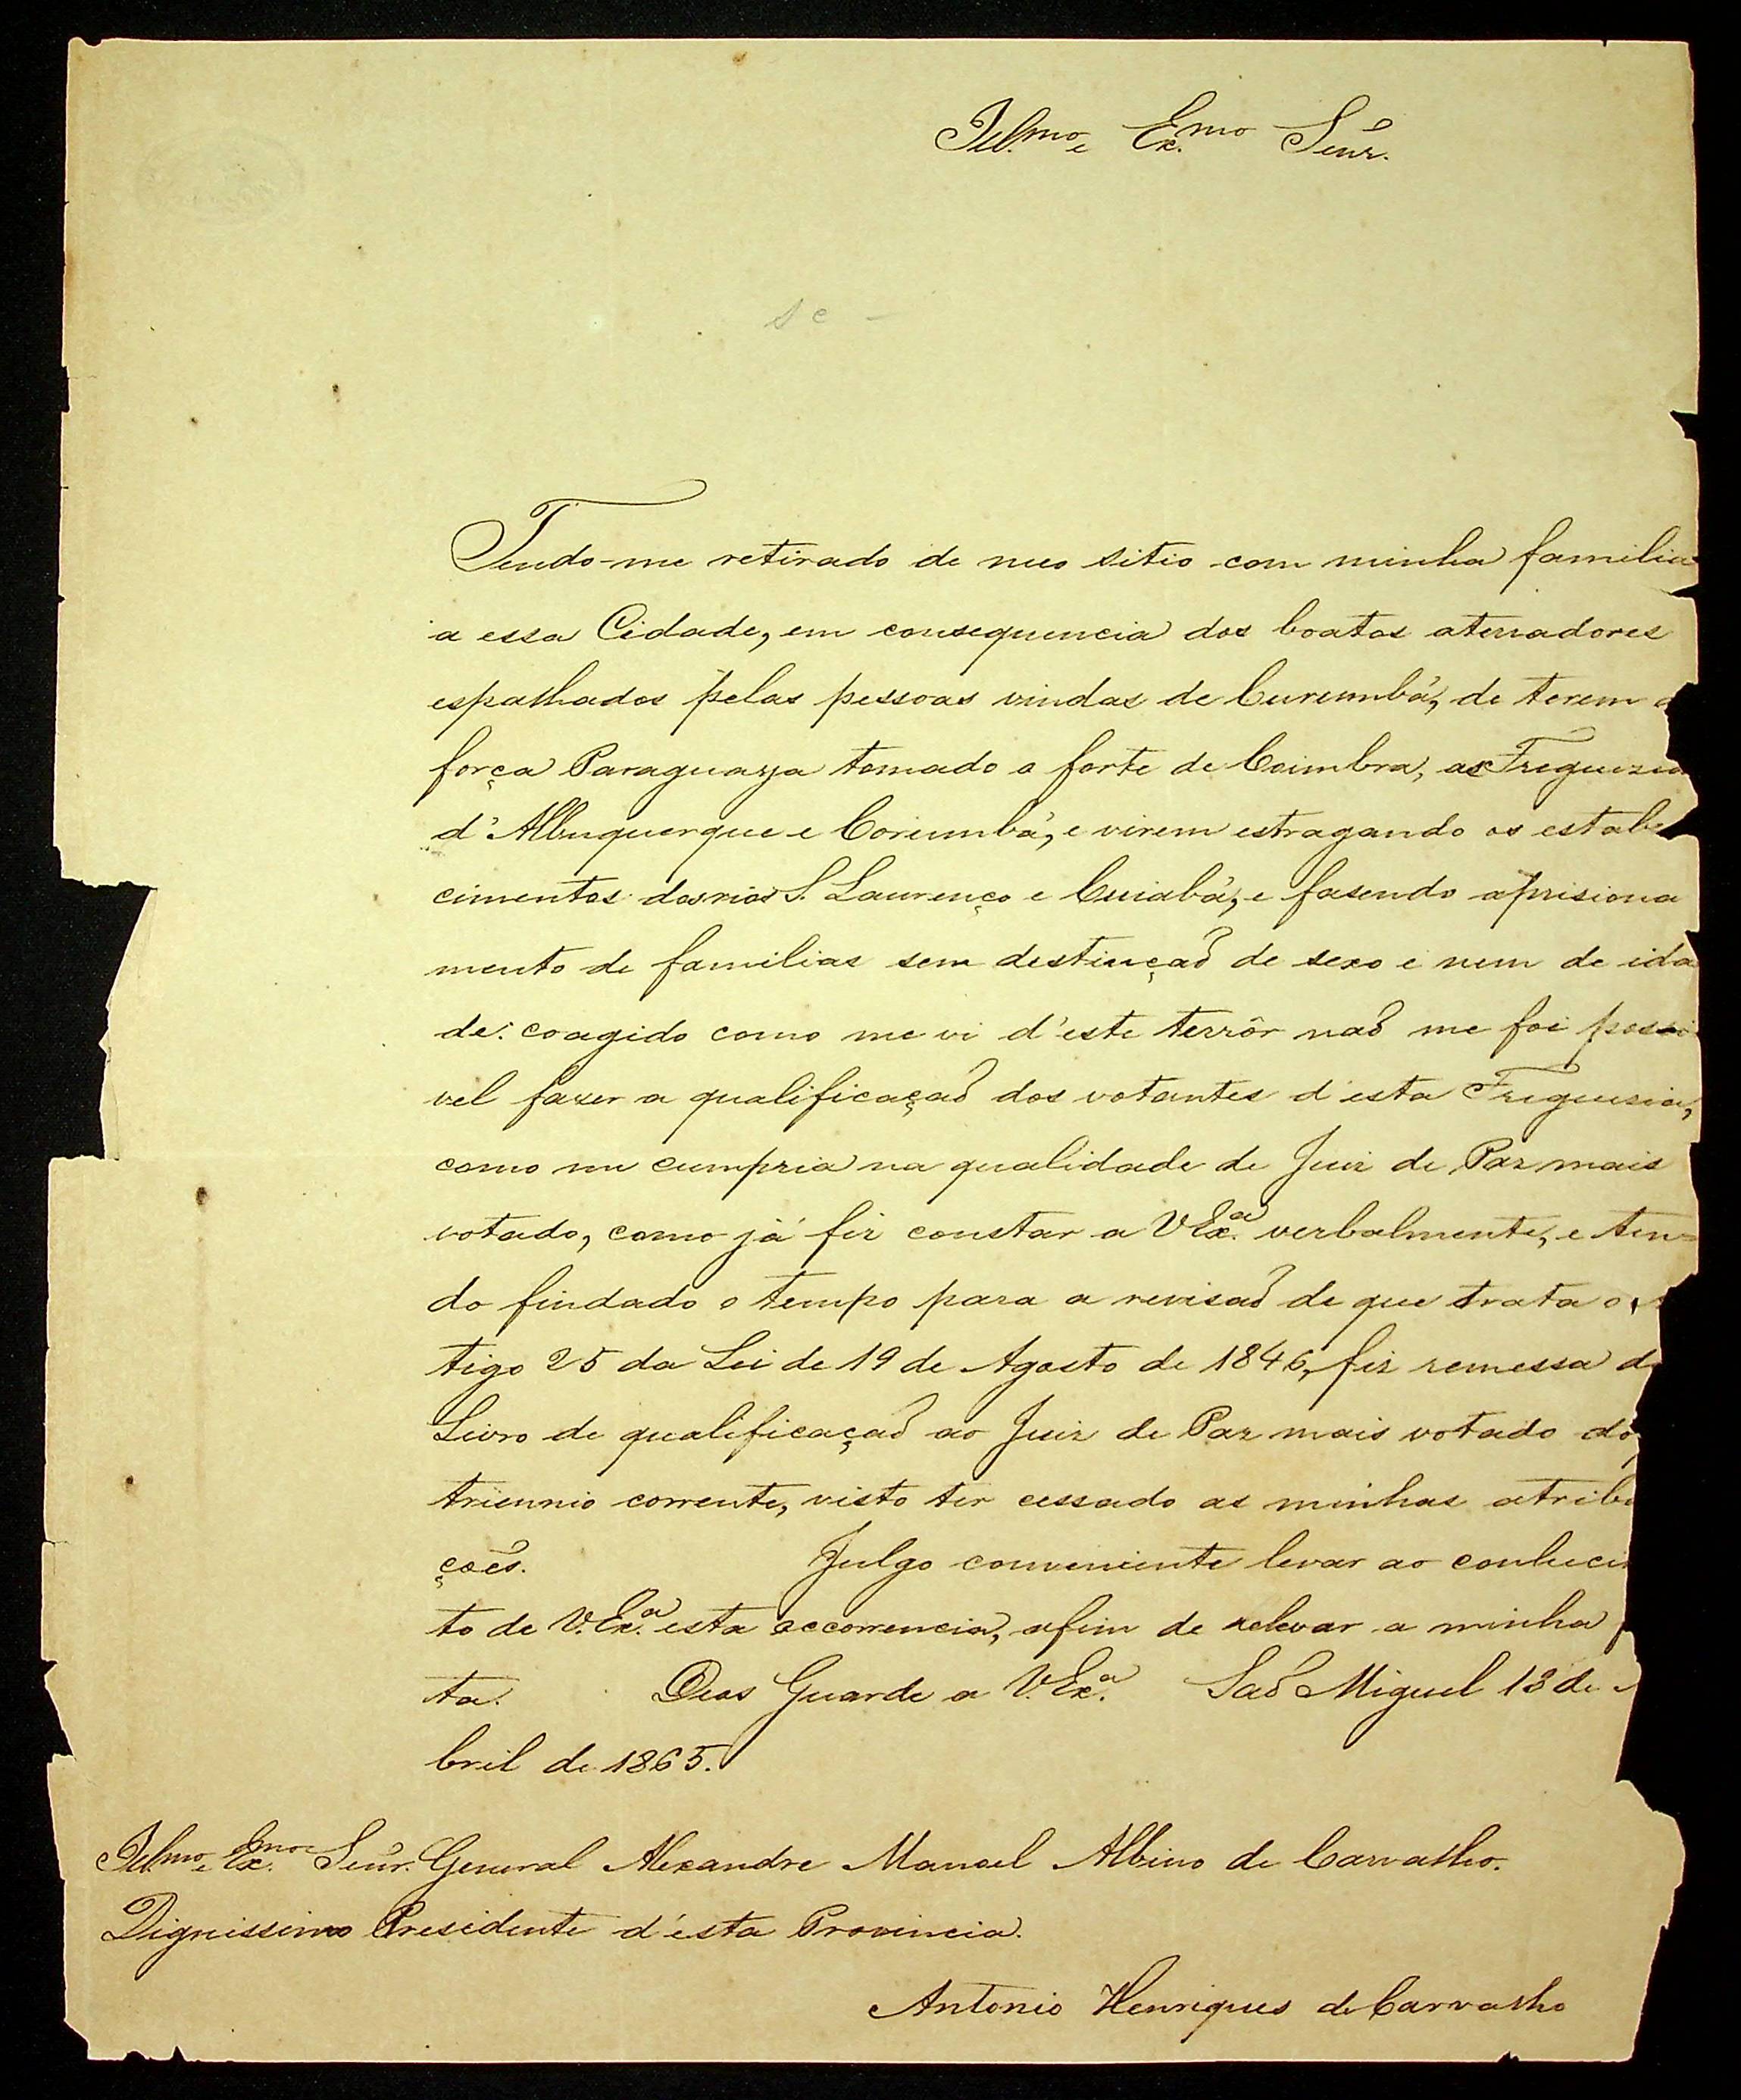 Illmo e Exmo Senr.
Tendo-me retirado de meo sitio com minha familia
a essa Cidade, em consequencia dos boatos aterradores
espalhados pelas pessoas vindas de Curumbá, de terem a
força Paraguaya tomado o forte de Coimbra, as Freguezia
d'Albuquerque e Corumbá, e virem estragando os estabe
cimentos dos rios S. Laurenço e Cuiabá, e fasendo aprisiona
mento de familias sem destinçaõ de sexo e nem de ida
de: coagido como me vi d'este terrôr naõ me foi possi
vel fazer a qualificaçaõ dos votantes d'esta Freguesia,
como me cumpria na qualidade de Juiz de Paz mais
votado, como já fiz constar a V Exa. verbalmente, e ten=
do findado o tempo para a revisaõ de que trata o
tigo 25 da Lei de 19 de Agosto de 1846, fiz remessa d
Livro de qualificaçaõ ao Juiz de Paz mais votado do
triennio corrente, visto ter cessado as minhas atribu
çoẽs. Julgo conveniente levar ao conheci
to de V. Exa. esta occorrencia, afim de relevar a minha
ta. Deos Guarde a V. Exa. Saõ Miguel 13 de A
bril de 1865.
Illmo e Exmo Senr. General Alexandre Manoel Albino de Carvalho.
Dignissimo Presidente d'esta Provincia.
Antonio Henriques de Carvalho